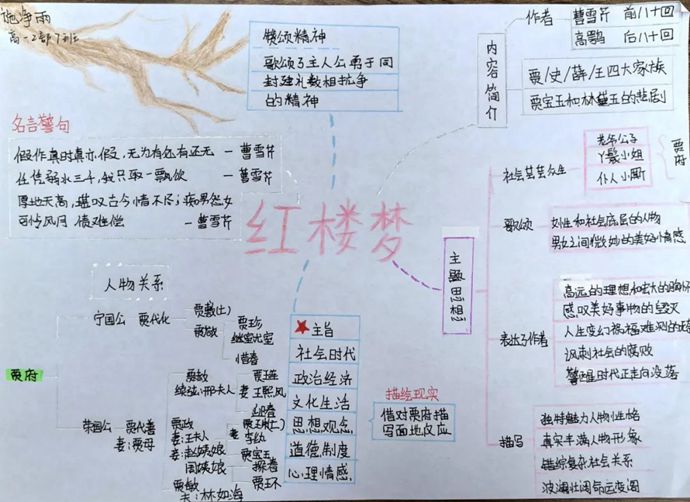 施净雨
高一2部7班
赞颂精神
歌颂了主人公勇于同
封建礼数相抗争
的精神
内容简介
作者
曹雪芹 前八十回
高鹗 后八十回
贾/史/薛/王四大家族
贾宝玉和林黛玉的悲剧
名言警句
假作真时真亦假，无为有处有还无 —曹雪芹
任凭弱水三千，我只取一瓢饮 —曹雪芹
厚地天高，堪叹古今情不尽；痴男怨女
可怜风月 情难偿 —曹雪芹
红楼梦
主题思想
社会芸芸众生
公子
丫鬟小姐
仆人小厮
贾府
歌颂
女性和社会底层的人物
男女之间微妙的美好情感
表达了作者
高远的理想和宏大的胸怀
感叹美好事物的毁灭
人生变幻祸福难测的无
讽刺社会的腐败
警醒时代正走向没落
描写
独特魅力人物性格
真实丰满人物形象
错综复杂社会关系
波澜壮阔命运变阔
人物关系
贾府
宁国公 贾代化
贾敷(亡)
贾敬
贾珍
继室尤室
惜春
荣国公 贾代善
妻:贾母
贾赦
续弦:邢夫人
贾琏
妻 王熙凤
迎春
贾政
妻:王夫人
妾:赵姨娘
周姨娘
李纨
贾宝玉
探春
贾环
贾敏
夫:林如海
主旨
社会时代
政治经济
文化生活
思想观念
道德制度
心理情感
描绘现实
借对贾府描
写面地反应